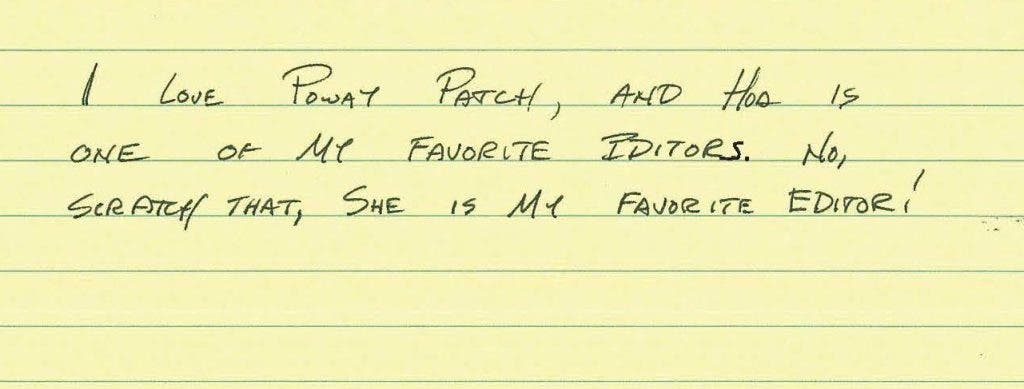 I LOVE POWAY PATCH, AND HOA IS
ONE OF MY FAVORITE EDITORS. NO,
SCRATCH THAT, SHE IS MY FAVORITE EDITOR!